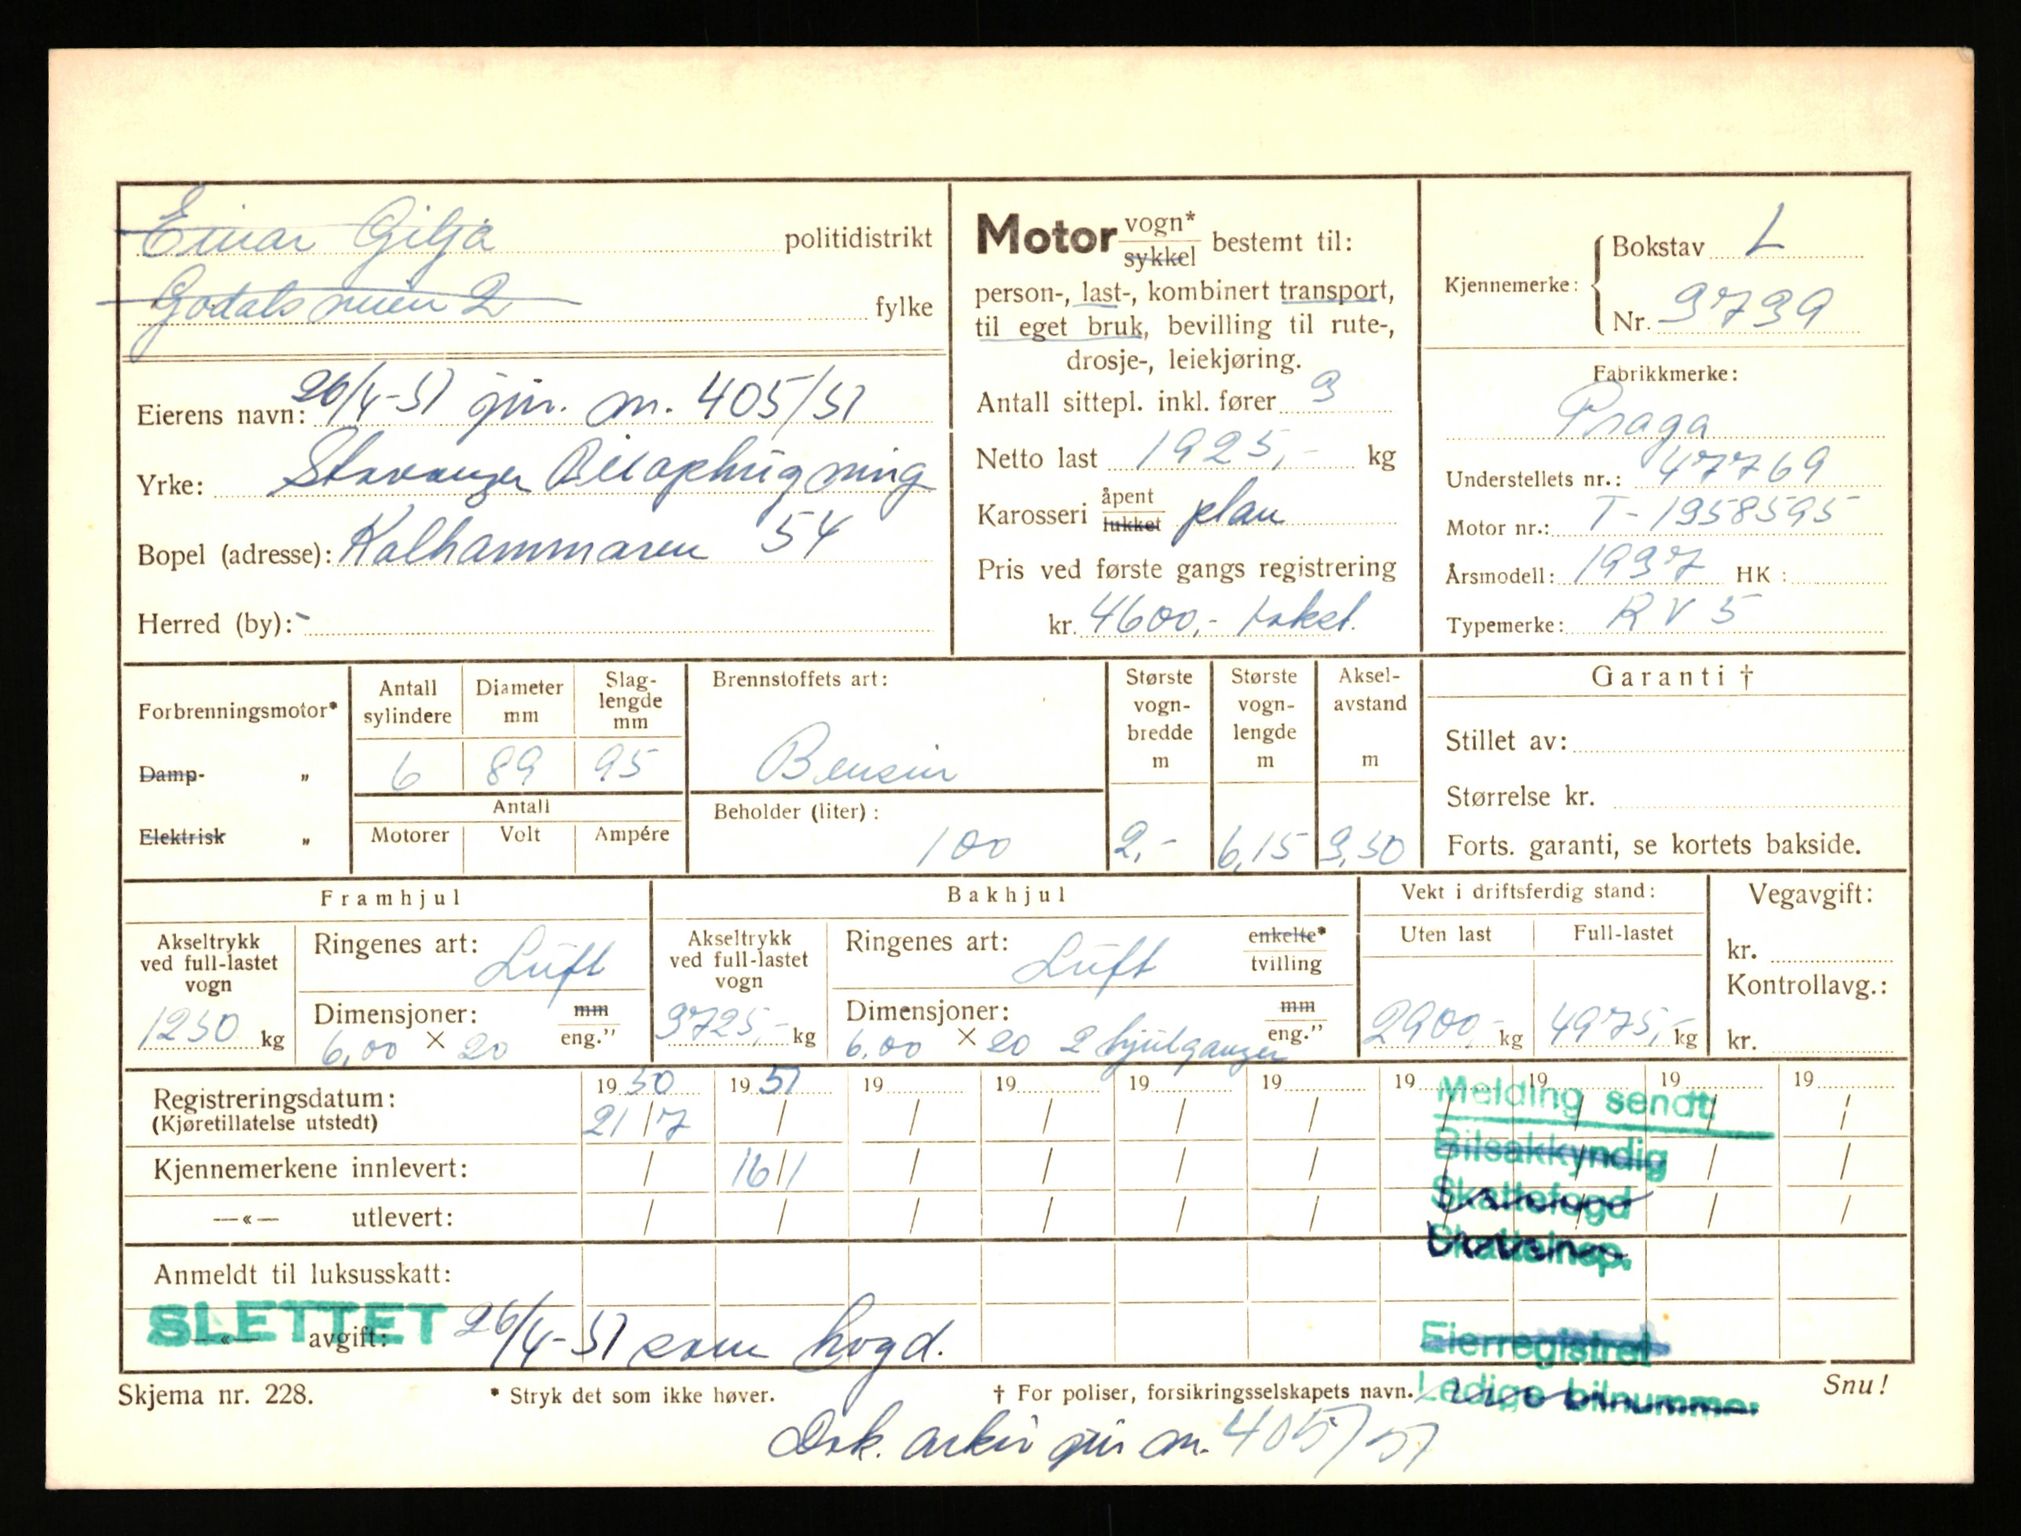 Einar Gilja politidistrikt
Godalsveien 2 fylke
Eierens navn: 26/4-51 jnr. m. 405/51
Yrke: Stavanger Bilophugning
Bopel (adresse): Kalhammaren 54
Herred (by):-
Motor vogn* sykkel bestemt til:
person-, last-, kombinert transport,
til eget bruk, bevilling til rute-,
drosje-, leiekjøring.
Antall sittepl. inkl. fører 3
Netto last 1925,- kg
Karosseri åpent lukket plan
Pris ved første gangs registrering
kr. 4600,- takst.
Kjennemerke: Bokstav L
Nr. 3739
Fabrikkmerke:
Praga
Understellets nr.: 47769
Motor nr.: T-1958595
Årsmodell: 1937 HK:
Typemerke: RV 5
Forbrenningsmotor*
Damp- „
Elektrisk „
Antall sylindere
Diameter mm
Slag-lengde mm
6 89 95
Antall
Motorer Volt Ampére
Brennstoffets art:
Bensin
Beholder (liter):
100
Største vogn-bredde m
2,-
Største vogn-lengde m
6,15
Aksel-avstand m
3,50
Garanti †
Stillet av:
Størrelse kr.
Forts. garanti, se kortets bakside.
Framhjul
Akseltrykk ved full-lastet vogn
1250 kg
Ringenes art: Luft
Dimensjoner: mm eng."
6,00 × 20
Bakhjul
Akseltrykk ved full-lastet vogn
3725,- kg
Ringenes art: Luft enkelte* tvilling
Dimensjoner: mm eng."
6.00 × 20 2 hjulganger
Vekt i driftsferdig stand:
Uten last Full-lastet
2900,- kg 4975,- kg
Vegavgift:
kr.
Kontrollavg.:
kr.
19 50 19 51 19 19 19 19 19 19 19 19
Registreringsdatum:
(Kjøretillatelse utstedt)
21/7
Kjennemerkene innlevert: 16/1
—«— utlevert:
Anmeldt til luksusskatt:
—«— avgift:
SLETTET 26/4-51 som hogd.
Melding sendt
Bilsakkyndig
Skattefogd
Skatteinsp.
Eierregistret
Ledige bilnummer
Skjema nr. 228.
* Stryk det som ikke høver.
† For poliser, forsikringsselskapets navn.
Snu!
Dok. arkiv jnr m. 405/51